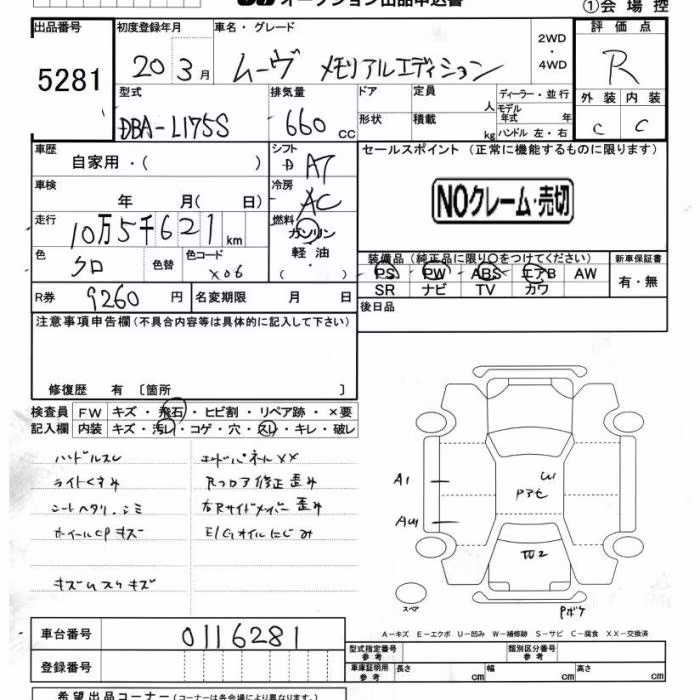 オークション出品申込書
①会場控
出品番号
5281
初度登録年月
20 3月
車名・グレード
ムーヴ メモリアルエディション
2WD
・
4WD
評価点
R
外装 内装
C C
型式
DBA-L175S
排気量
660 cc
ドア
定員
人
形状
積載
kg
ディーラー・並行
モデル
年式 年
ハンドル 左・右
車歴
自家用・( )
シフト
AT
セールスポイント (正常に機能するものに限ります)
NOクレーム・売切
車検
年 月( 日)
冷房
AC
走行
10万5千621km
燃料
ガソリン
軽油
・( )
色
クロ
色替
色コード
X06
装備品(純正品に限り○をつけてください)
PS PW ABS エアB AW
SR ナビ TV カワ
新車保証書
有・無
R券
9260円
名変期限 月 日
後日品
注意事項申告欄(不具合内容等は具体的に記入して下さい)
修復歴 有 〔箇所 〕
検査員
記入欄
FW キズ・飛石・ヒビ割・リペア跡・×要
内装 キズ・汚レ・コゲ・穴・スレ・キレ・破レ
ハンドルスレ
ライトくすみ
シートヘタリ・シミ
ホイールCPキズ
キズムスウキズ
エンドパネルXX
Rフロア修正歪み
右Rサイドメンバー歪み
E/Gオイルにじみ
A1
W
Pアセ
スペア
Pボケ
A-キズ E-エクボ U-凹み W-補修跡 S-サビ C-腐食 XX-交換済
車台番号
0116281
登録番号
型式指定番号
参考
類別区分番号
参考
車庫証明用
参考
長さ cm
幅 cm
高さ cm
希望出品コーナー(コーナーは各会場により異なります。)